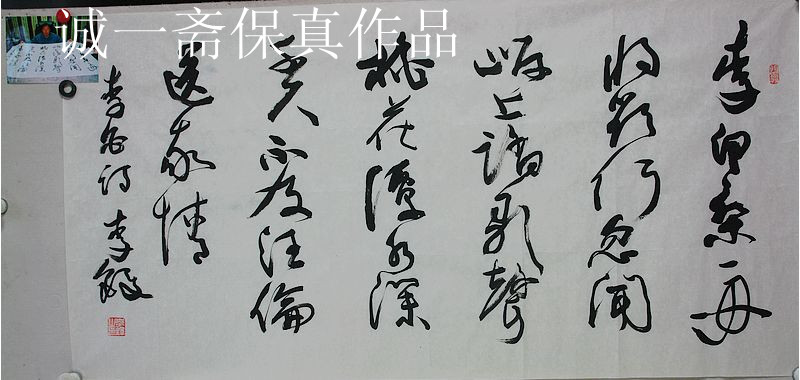 诚一斋保真作品
李白乘舟
将欲行忽闻
岸上踏歌聲
桃花潭水深
千尺不及汪倫
送我情
李白诗 李